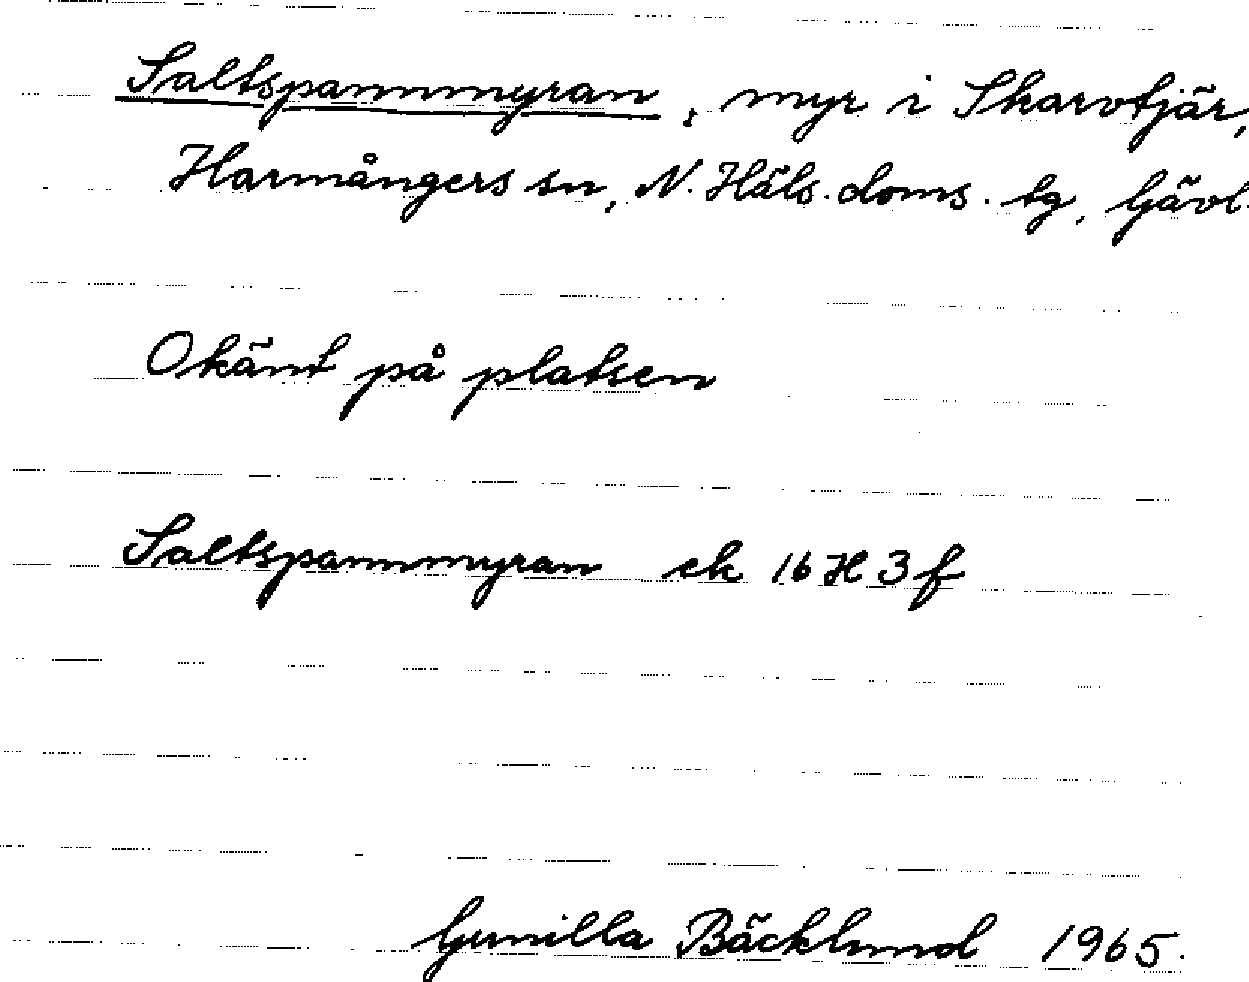 Saltspannmyran, myr i Skarvtjär,
Harmångers sn, N. Häls. doms. tg, Gävl.
Okänt på platsen
Saltspannmyran ek 16 H 3 f
Gunilla Bäcklund 1965.